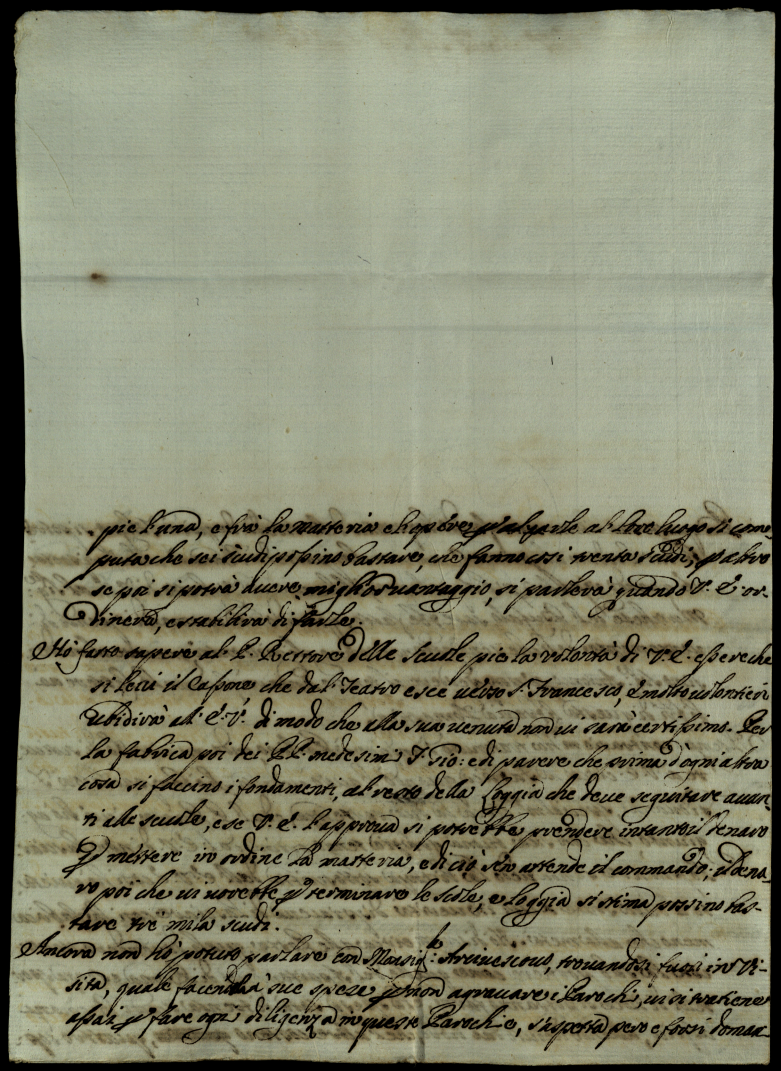 pie l'una, e frà la matteria et opere p alzarle al loro luogo si com-
puta che sei scudi possino bastare, che fanno così trenta scudi; p altro
se poi si potrà avere miglior vantaggio, si parlerà quando V. E. or-
dinerà, e stabilirà di farle.
Hò fatto sapere al P. Rettore delle Scuole pie la volontà di V. E. essere che
si levi il Cassone che dal Teatro esce verso S. Francesco, e molto volontieri
ubidirà all' E. V. di modo che alla sua venuta non vi sarà certissimo. Per
la fabrica poi dei PP. medesimi F. Gio: è di parere che prima d'ogni altra
cosa si faccino i fondamenti, al resto della Loggia che deve seguitare avan-
ti alle scuole, e se V. E. l'approva si potrebbe prendere intanto il denaro
p mettere in ordine la matteria, e di ciò se n' attende il commando; il dena-
ro poi che vi vorebbe p terminare le scole, e loggia si stima possino bas-
tare tre mila scudi.
Ancora non hò potuto parlare con Monsig.r Arcivescovo, trovandosi fuori in Vi-
sita, quale facendola à sue speze p non agravare i Parochi, vi si tratiene
assai p fare ogni diligenza in queste Parochie, s'aspetta però e forsi doman-